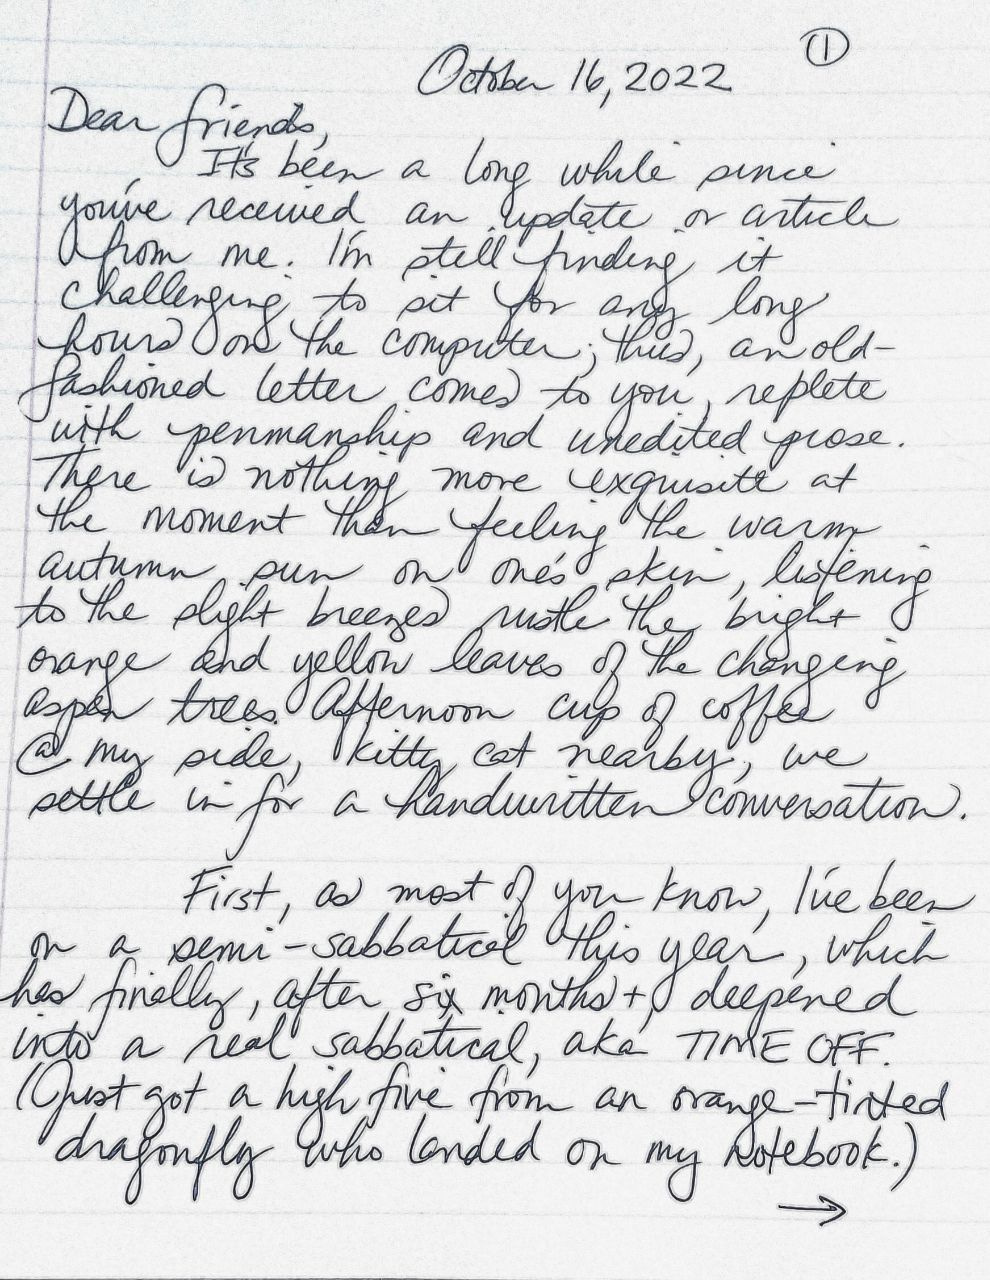 ①
October 16, 2022
Dear friends,
It's been a long while since
you've received an update or article
from me. I'm still finding it
challenging to sit for any long
hours on the computer; thus, an old-
fashioned letter comes to you, replete
with penmanship and unedited prose.
There is nothing more exquisite at
the moment than feeling the warm
autumn sun on one's skin, listening
to the slight breezes rustle the bright
orange and yellow leaves of the changing
aspen trees. Afternoon cup of coffee
@ my side, kitty cat nearby, we
settle in for a handwritten conversation.
First, as most of you know, I've been
on a semi-sabbatical this year, which
has finally, after six months+, deepened
into a real sabbatical, aka TIME OFF.
(Just got a high five from an orange-tinted
dragonfly who landed on my notebook.)
→